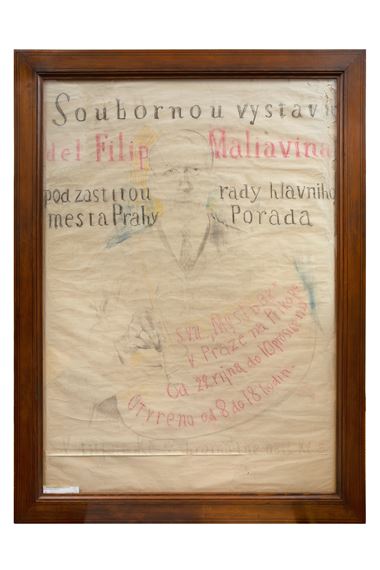 Soubornou vystavu
del Filip Maliavina
pod zastitou rady hlavniho
mesta Prahy Porada
S.V.U. Myslbek
v Praze na Prikope
Od 22 rijna do 10 prosince
Otvreno od 8 do 18 hodin.